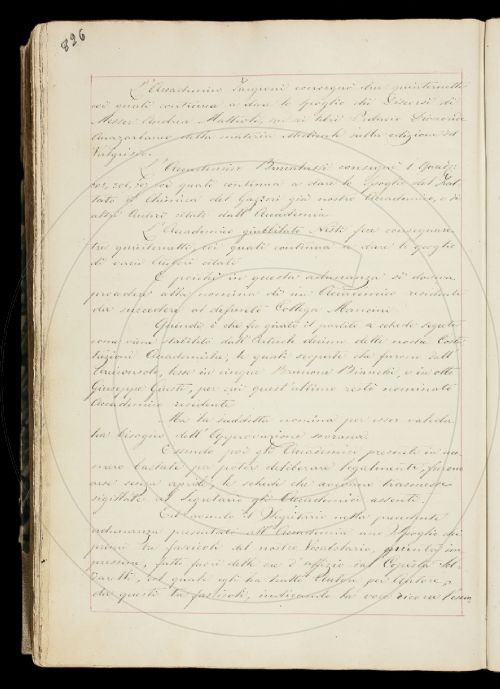 896
L'Accademico Targioni consegnò tre quinternetti
coi quali continua a dare lo spoglio dei Discorsi di
Messer Andrea Mattioli, su i libri Pedacio Dioscoride
Anazarbeo della materia Medicinale sulla edizione del
Valgrisi.
L'Accademico Brunetti consegnò i Quader
coi quali continua a dare lo spoglio del Trat
tato di Chimica del Gazzeri già nostro Accademico, e di
altri Autori citati dall'Accademia.
L'Accademico Nesti fece consegnare
tre quinternetti, coi quali continua a dare lo spoglio
di varii Autori citati.
E poichè in questa adunanza si doveva
procedere alla nomina di un Accademico residente
da succedere al defunto Collega Mancini.
Quindi è che fu girato il partito a schede segrete
come viene stabilito dall'articolo decimo delle nostre Costi
tuzioni Accademiche, le quali schede che furono dall'
lesse in cinque Brunone Bianchi, e in otto
Giuseppe Giusti, per cui quest'ultimo restò nominato
Accademico residente.
Ma la suddetta nomina per esser valida
ha bisogno dell'Approvazione sovrana.
Essendo poi gli Accademici presenti in nu
mero bastante per poter deliberare legalmente, furono
arse senza aprirle le schede che avevano trasmesse
sigillate al Segretario gli Accademici assenti.
Ed avendo il Segretario nella precedente
adunanza presentato all'Accademia uno spoglio dei
primi tre fascicoli del nostro Vocabolario, quinta im
pressione, fatto fuori delle ore d'uffizio dal Copista del
Zanetti, dal quale egli ha tratto Autore per Autore,
da questi tre fascicoli, indicando la voce